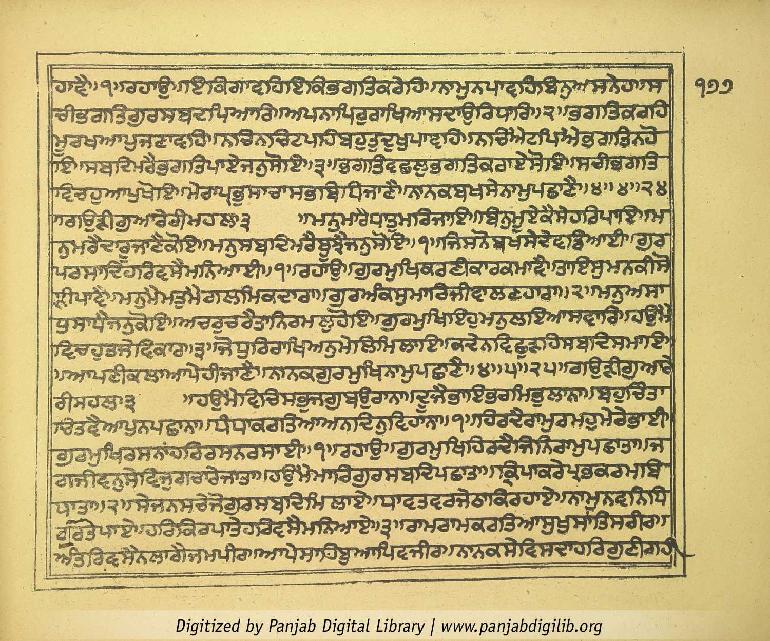 ਹਾਵੈ॥੧॥ਰਹਾਉ॥ਇਕਿਗਾਵਹਿਇਕਿਭਗਤਿਕਰੇਹਿ॥ਨਾਮੁਨਪਾਵਹਿਬਿਨੁਅਸਨੇਹ॥ਸ
੧੭੭
ਚੀਭਗਤਿਗੁਰਸਬਦਪਿਆਰਿ॥ਅਪਨਾਪਿਰੁਰਾਖਿਆਸਦਾਉਰਿਧਾਰਿ॥੨॥ਭਗਤਿਕਰਹਿ
ਮੂਰਖਆਪੁਜਣਾਵਹਿ॥ਨਚਿਨਚਿਟਪਹਿਬਹੁਤੁਦੁਖੁਪਾਵਹਿ॥ਨਚਿਐਟਪਿਐਭਗਤਿਨਹੋ
ਇ॥ਸਬਦਿਮਰੈਭਗਤਿਪਾਏਜਨੁਸੋਇ॥੩॥ਭਗਤਿਵਛਲੁਭਗਤਿਕਰਾਏਸੋਇ॥ਸਚੀਭਗਤਿ
ਵਿਚਹੁਆਪੁਖੋਇ॥ਮੇਰਾਪ੍ਰਭੁਸਾਚਾਸਭਬਿਧਿਜਾਣੈ॥ਨਾਨਕਬਖਸੇਨਾਮੁਪਛਾਣੈ॥੪॥੪॥੨੪
॥ਗਉੜੀਗੁਆਰੇਰੀਮਹਲਾ੩ ॥ਮਨੁਮਾਰੇਧਾਤੁਮਰਿਜਾਇ॥ਬਿਨੁਮੂਏਕੈਸੇਹਰਿਪਾਇ॥ਮ
ਨੁਮਰੈਦਾਰੂਜਾਣੈਕੋਇ॥ਮਨੁਸਬਦਿਮਰੈਬੂਝੈਜਨੁਸੋਇ॥੧॥ਜਿਸਨੋਬਖਸੇਦੇਵਡਿਆਈ॥ਗੁਰ
ਪਰਸਾਦਿਹਰਿਵਸੈਮਨਿਆਈ॥੧॥ਰਹਾਉ॥ਗੁਰਮੁਖਿਕਰਣੀਕਾਰਕਮਾਵੈ॥ਤਾਇਸੁਮਨਕੀਸੋ
ਝੀਪਾਵੈ॥ਮਨੁਮੈਮਤੁਮੈਗਲਮਿਕਦਾਰਾ॥ਗੁਰਅੰਕਸੁਮਾਰਿਜੀਵਾਲਣਹਾਰਾ॥੨॥ਮਨੁਅਸਾ
ਧੁਸਾਧੈਜਨੁਕੋਇ॥ਅਚਰੁਚਰੈਤਾਨਿਰਮਲੁਹੋਇ॥ਗੁਰਮੁਖਿਇਹੁਮਨੁਲਇਆਸਵਾਰਿ॥ਹਉਮੈ
ਵਿਚਹੁਤਜੇਵਿਕਾਰ॥੩॥ਜੋਧੁਰਿਰਾਖਿਅਨੁਮੇਲਿਮਿਲਾਇ॥ਕਦੇਨਵਿਛੁੜਹਿਸਬਦਿਸਮਾਇ
॥ਆਪਣੀਕਲਾਆਪੇਹੀਜਾਣੈ॥ਨਾਨਕਗੁਰਮੁਖਿਨਾਮੁਪਛਾਣੈ॥੪॥੫॥੨੫॥ਗਉੜੀਗੁਆਰੇ
ਰੀਮਹਲਾ੩ ॥ਹਉਮੈਵਿਚਿਸਭੁਜਗੁਬਉਰਾਨਾ॥ਦੂਜੈਭਾਇਭਰਮਿਭੁਲਾਨਾ॥ਬਹੁਚਿੰਤਾ
ਚਿਤਵੈਆਪੁਨਪਛਾਨਾ॥ਧੰਧਾਕਰਤਿਆਅਨਦਿਨੁਵਿਹਾਨਾ॥੧॥ਹਿਰਦੈਰਾਮੁਰਮਹੁਮੇਰੇਭਾਈ
ਗੁਰਮੁਖਿਰਸਨਾਹਰਿਰਸਨਰਸਾਈ॥੧॥ਰਹਾਉ॥ਗੁਰਮੁਖਿਹਿਰਦੈਜਿਨਿਰਾਮੁਪਛਾਤਾ॥ਜ
ਗਜੀਵਨੁਸੇਵਿਜੁਗਚਾਰੇਜਾਤਾ॥ਹਉਮੈਮਾਰਿਗੁਰਸਬਦਿਪਛਾਤਾ॥ਕ੍ਰਿਪਾਕਰੇਪ੍ਰਭਕਰਮਬਿ
ਧਾਤਾ॥੨॥ਸੇਜਨਸਚੇਜੋਗੁਰਸਬਦਿਮਿਲਾਏ॥ਧਾਵਤਵਰਜੇਠਾਕਿਰਹਾਏ॥ਨਾਮੁਨਵਨਿਧਿ
ਗੁਰਤੇਪਾਏ॥ਹਰਿਕਿਰਪਾਤੇਹਰਿਵਸੈਮਨਿਆਏ॥੩॥ਰਾਮਰਾਮਕਰਤਿਆਸੁਖੁਸਾਂਤਿਸਰੀਰ॥
ਅੰਤਰਿਵਸੈਨਲਾਗੈਜਮਪੀਰ॥ਆਪੇਸਾਹਿਬੁਆਪਿਵਜੀਰ॥ਨਾਨਕਸੇਵਿਸਦਾਹਰਿਗੁਣੀਗਹੀ
Digitized by Panjab Digital Library | www.panjabdigilib.org